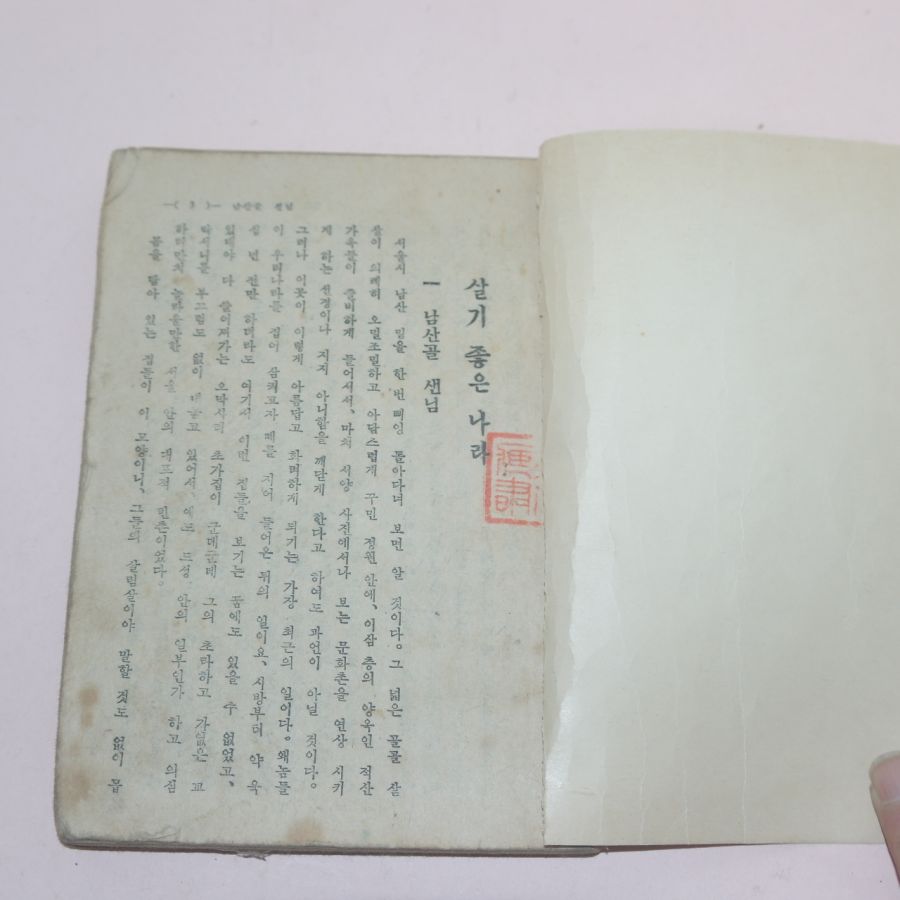 —( 3 )— 남산골 샌님
살기 좋은 나라
一 남산골 샌님
서울시 남산 밑을 한번 삐잉 돌아다녀 보면 알 것이다。 그 넓은 골골 살
살이 의례히 오밀조밀하고 아담스럽게 꾸민 정원 안에、 이삼 층의 양옥인 적산
가옥들이 즐비하게 들어서서、 마치 서양 사진에서나 보는 문화촌을 연상 시키
게 하는 선경이나 지지 아니함을 깨닫게 한다고 하여도 과언이 아닐 것이다。
그러나 이곳이 이렇게 아름답고 화려하게 되기는 가장 최근의 일이다。 왜놈들
이 우리나라를 집어 삼켜고자 떼를 지어 들어온 뒤의 일이요、 시방부터 약 육
십 년 전만 하더라도 여기서 이런 집들을 보기는 꿈에도 있을 수 없었고、
있대야 다 쓸어져가는 오막사리 초가집이 군데군데 그의 초라하고 가엾은 교
부끄럼도 없이 있어서、 도성 안의 일부인가 하고 의심
하리만치 놀라울만한 서울 안의 대표적 빈촌이었다。
몸을 담아 있는 집들이 이 모양이니、 그들의 살림살이야 말할 것도 없이 몹